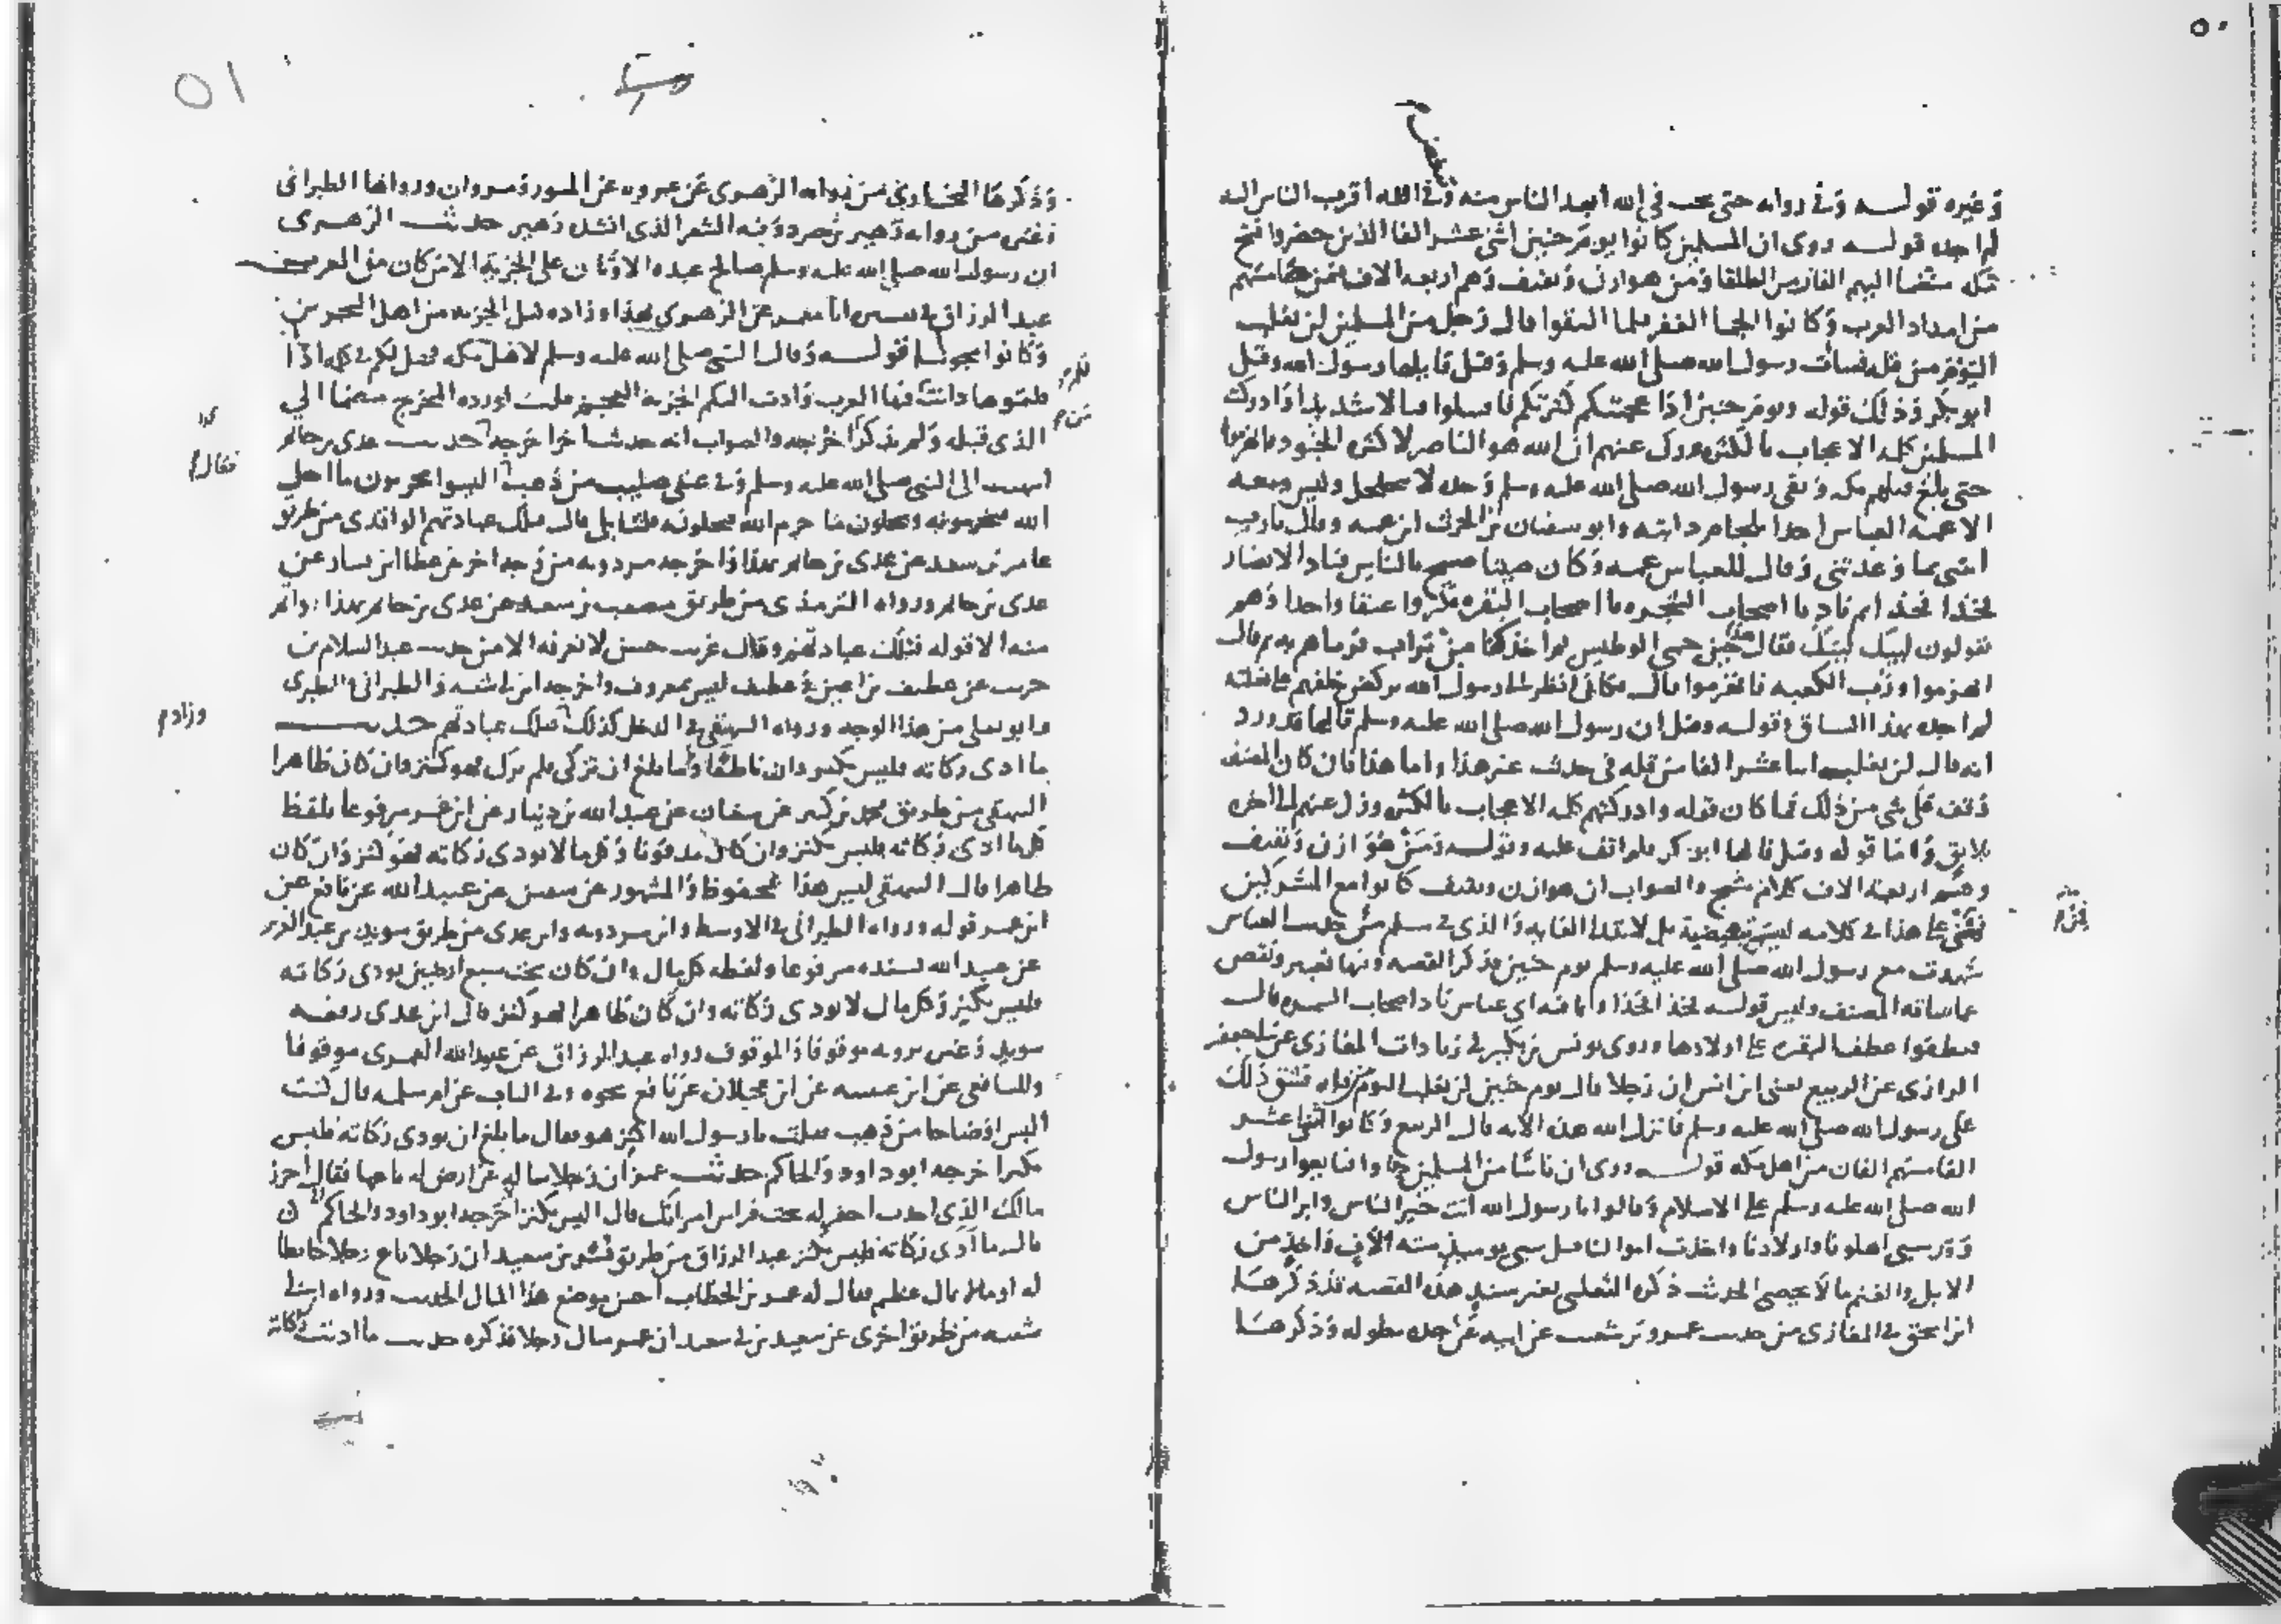 ٥٠
وغيره قوله وفي رواية حتى يحب في الله أبعد الناس منه وفي الله أقرب الناس إليه
لم أجده قوله روى أن المسلمين كانوا يوم حنين اثني عشر ألفا الذين حضروا فتح
مكة منضما إليهم ألفان من الطلقا ومن هوازن وثقيف وهم أربعة الاف فيمن ضامهم
من امداد العرب وكانوا الجم الغفير فلما التقوا قال رجل من المسلمين لن نغلب
اليوم من قلة فساءت رسول الله صلى الله عليه وسلم وقيل قايلها رسول الله وقيل
أبو بكر وذلك قوله ويوم حنين إذ أعجبتكم كثرتكم فاقتتلوا قتالا شديدا وأدركت
المسلمين كلمة الاعجاب بالكثرة وزل عنهم أن الله هو الناصر لا كثرة الجنود فانهزموا
حتى بلغ فلهم مكة وبقي رسول الله صلى الله عليه وسلم وحده لا يتحلحل وليس معه
الا عمه العباس آخذا بلجام دابته وأبو سفيان بن الحرث ابن عمه وقال يا رب
ائتني بما وعدتني وقال للعباس عمه وكان صيتا صيح بالناس فنادا الانصار
فخذا فخذا ثم نادا يا أصحاب الشجرة يا أصحاب البقرة فكروا عنقا واحدا وهم
يقولون لبيك لبيك فقال هذا حين حمي الوطيس ثم أخذ كفا من تراب فرماهم به ثم قال
انهزموا ورب الكعبة فانهزموا قال فكأني أنظر إلى رسول الله يركض خلفهم على بغلته
لم أجده بهذا السياق وقوله وقيل إن رسول الله صلى الله عليه وسلم قالها قد ورد
أنه قال لن يغلب اثنا عشر ألفا من قلة في حديث غير هذا وأما هذا فان كان المصنف
وقف على شي من ذلك فما كان قوله وأدركتهم كلمة الاعجاب بالكثرة وزل عنهم إلى آخره
بلايق وأما قوله وقيل قالها أبو بكر فلم أقف عليه وقوله ومن هوازن وثقيف
وهم أربعة الاف كلام والصواب أن هوازن وثقيف كانوا مع المشركين
فمن على هذا في كلامه ليست تبعيضية بل لابتداء الغاية والذي في مسلم من حديث العباس
شهدت مع رسول الله صلى الله عليه وسلم يوم حنين فذكر القصة وفيها تغيير ونقص
عما ساقه المصنف وليس قوله فخذا فخذا وانما فيه أي عباس نادا أصحاب السمرة قال
فعطفوا عطف البقر على أولادها وروى يونس بن بكير في زيادات المغازي عن أبي جعفر
الرازي عن الربيع يعني ابن أنس أن رجلا قال يوم حنين لن نغلب اليوم من قلة فشق ذلك
على رسول الله صلى الله عليه وسلم فأنزل الله هذه الاية قال الربيع وكانوا اثني عشر
ألفا منهم ألفان من أهل مكة قوله وروى أن ناسا من المسلمين جاوا فبايعوا رسول
الله صلى الله عليه وسلم على الاسلام وقالوا يا رسول الله أنت خير الناس وأبر الناس
وقد سبي أهلونا وأولادنا وأخذت أموالنا قيل سبي يوميذ ستة الاف وأخذ من
الابل والغنم ما لا يحصى الحديث ذكره الثعلبي بغير سند هذه القصة قد ذكرها
ابن اسحق في المغازي من حديث عمرو بن شعيب عن أبيه عن جده بطوله وذكرها
٥١
وذكرها البخاري من رواية الزهري عن عروة عن المسور ومروان ورواها الطبراني
وغيره من رواية زهير بن صرد وفيه الشعر الذي أنشده زهير حديث الزهري
أن رسول الله صلى الله عليه وسلم صالح عبدة الاوثان على الجزية الا من كان من العرب
عبد الرزاق في تفسيره أنا معمر عن الزهري بهذا وزاد قبل الجزية من أهل البحرين
وكانوا مجوسا قوله وقال النبي صلى الله عليه وسلم لاهل مكة هل لكم في كلمة إذا
قلتموها دانت لكم بها العرب وأدت اليكم الجزية العجم قلت أورده المخرج مضما إلى
الذي قبله ولم يذكر أخرجه والصواب أنه حديث آخر أخرجه حديث عدي بن حاتم
أتيت إلى النبي صلى الله عليه وسلم وفي عنقي صليب من ذهب أليسوا يحرمون ما أحل
الله فتحرمونه ويحلون ما حرم الله فتحلونه قلت بلى قال فتلك عبادتهم الواقدي من طريق
عامر بن سعد عن عدي بن حاتم بهذا وأخرجه ابن مردويه من وجه آخر عن عطا ابن يسار عن
عدي بن حاتم ورواه الترمذي من طريق مصعب بن سعد عن عدي بن حاتم بهذا وأتم
منه الا قوله فتلك عبادتهم وقال غريب حسن لا نعرفه الا من حديث عبد السلام بن
حرب عن غطيف بن أعين وغطيف ليس بمعروف وأخرجه ابن أبي شيبة والطبراني والطبري
وأبو يعلى من هذا الوجه ورواه البيهقي في المدخل كذلك فتلك عبادتهم حديث
ما أدى زكاته فليس بكنز وان كان باطنا وما بلغ أن تزكى فلم يزك فهو كنز وان كان ظاهرا
البيهقي من طريق محمد بن كثير عن سفيان عن عبد الله بن دينار عن ابن عمر مرفوعا بلفظ
كل ما أدى زكاته فليس بكنز وان كان مدفونا وكل ما لا يودى زكاته فهو كنز وان كان
ظاهرا قال البيهقي ليس هذا بمحفوظ والمشهور عن سفيان عن عبيد الله عن نافع عن
ابن عمر قوله ورواه الطبراني في الاوسط وابن مردويه وابن عدي من طريق سويد بن عبد العزيز
عن عبيد الله بسنده مرفوعا ولفظه كل مال وان كان تحت سبع أرضين يودى زكاته
فليس بكنز وكل مال لا يودى زكاته وان كان ظاهرا فهو كنز قال ابن عدي رفعه
سويد وغيره يرويه موقوفا والموقوف رواه عبد الرزاق عن عبيد الله العمري موقوفا
وللشافعي عن ابن عيينة عن ابن عجلان عن نافع نحوه وفي الباب عن أم سلمة قال كنت
ألبس أوضاحا من ذهب فقلت يا رسول الله أكنز هو فقال ما بلغ أن يودى زكاته فليس
بكنز أخرجه أبو داود والحاكم حديث عمر أن رجلا سأله عن أرض له باعها فقال أحرز
مالك الذي أخذت احفر له تحت فراش امرأتك قال أليس بكنز أخرجه أبو داود والحاكم
قال ما أدى زكاته فليس بكنز عبد الرزاق من طريق بسر بن سعيد أن رجلا باع رجلا حايطا
له أو مالا بمال عظيم فقال له عمر بن الخطاب أحسن موضع هذا المال الحديث ورواه ابن أبي
شيبة من طريق أخرى عن سعيد بن أبي سعيد أن عمر سأل رجلا فذكره حديث ما أديت زكاته
فقال
وزاد